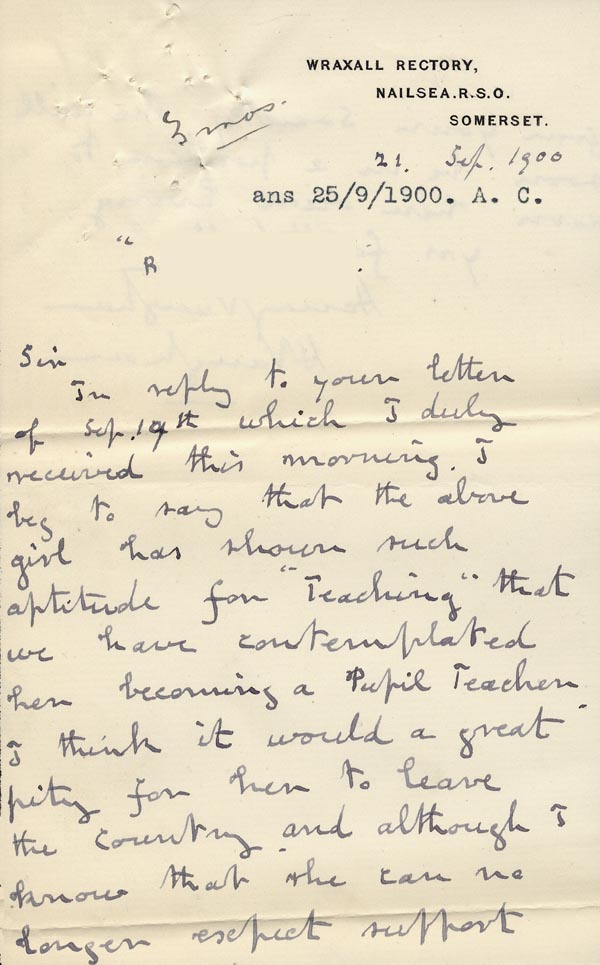 WRAXALL RECTORY,
NAILSEA.R.S.O.
SOMERSET.
21. Sep. 1900
ans 25/9/1900. A. C.
"R
Sir
In reply to your letter
of Sep. 19th which I duly
received this morning. I
beg to say that the above
girl has shown such
aptitude for "Teaching" that
we have contemplated
her becoming a Pupil Teacher.
I think it would a great
pity for her to leave
the country and although I
know that she can no
longer expect support